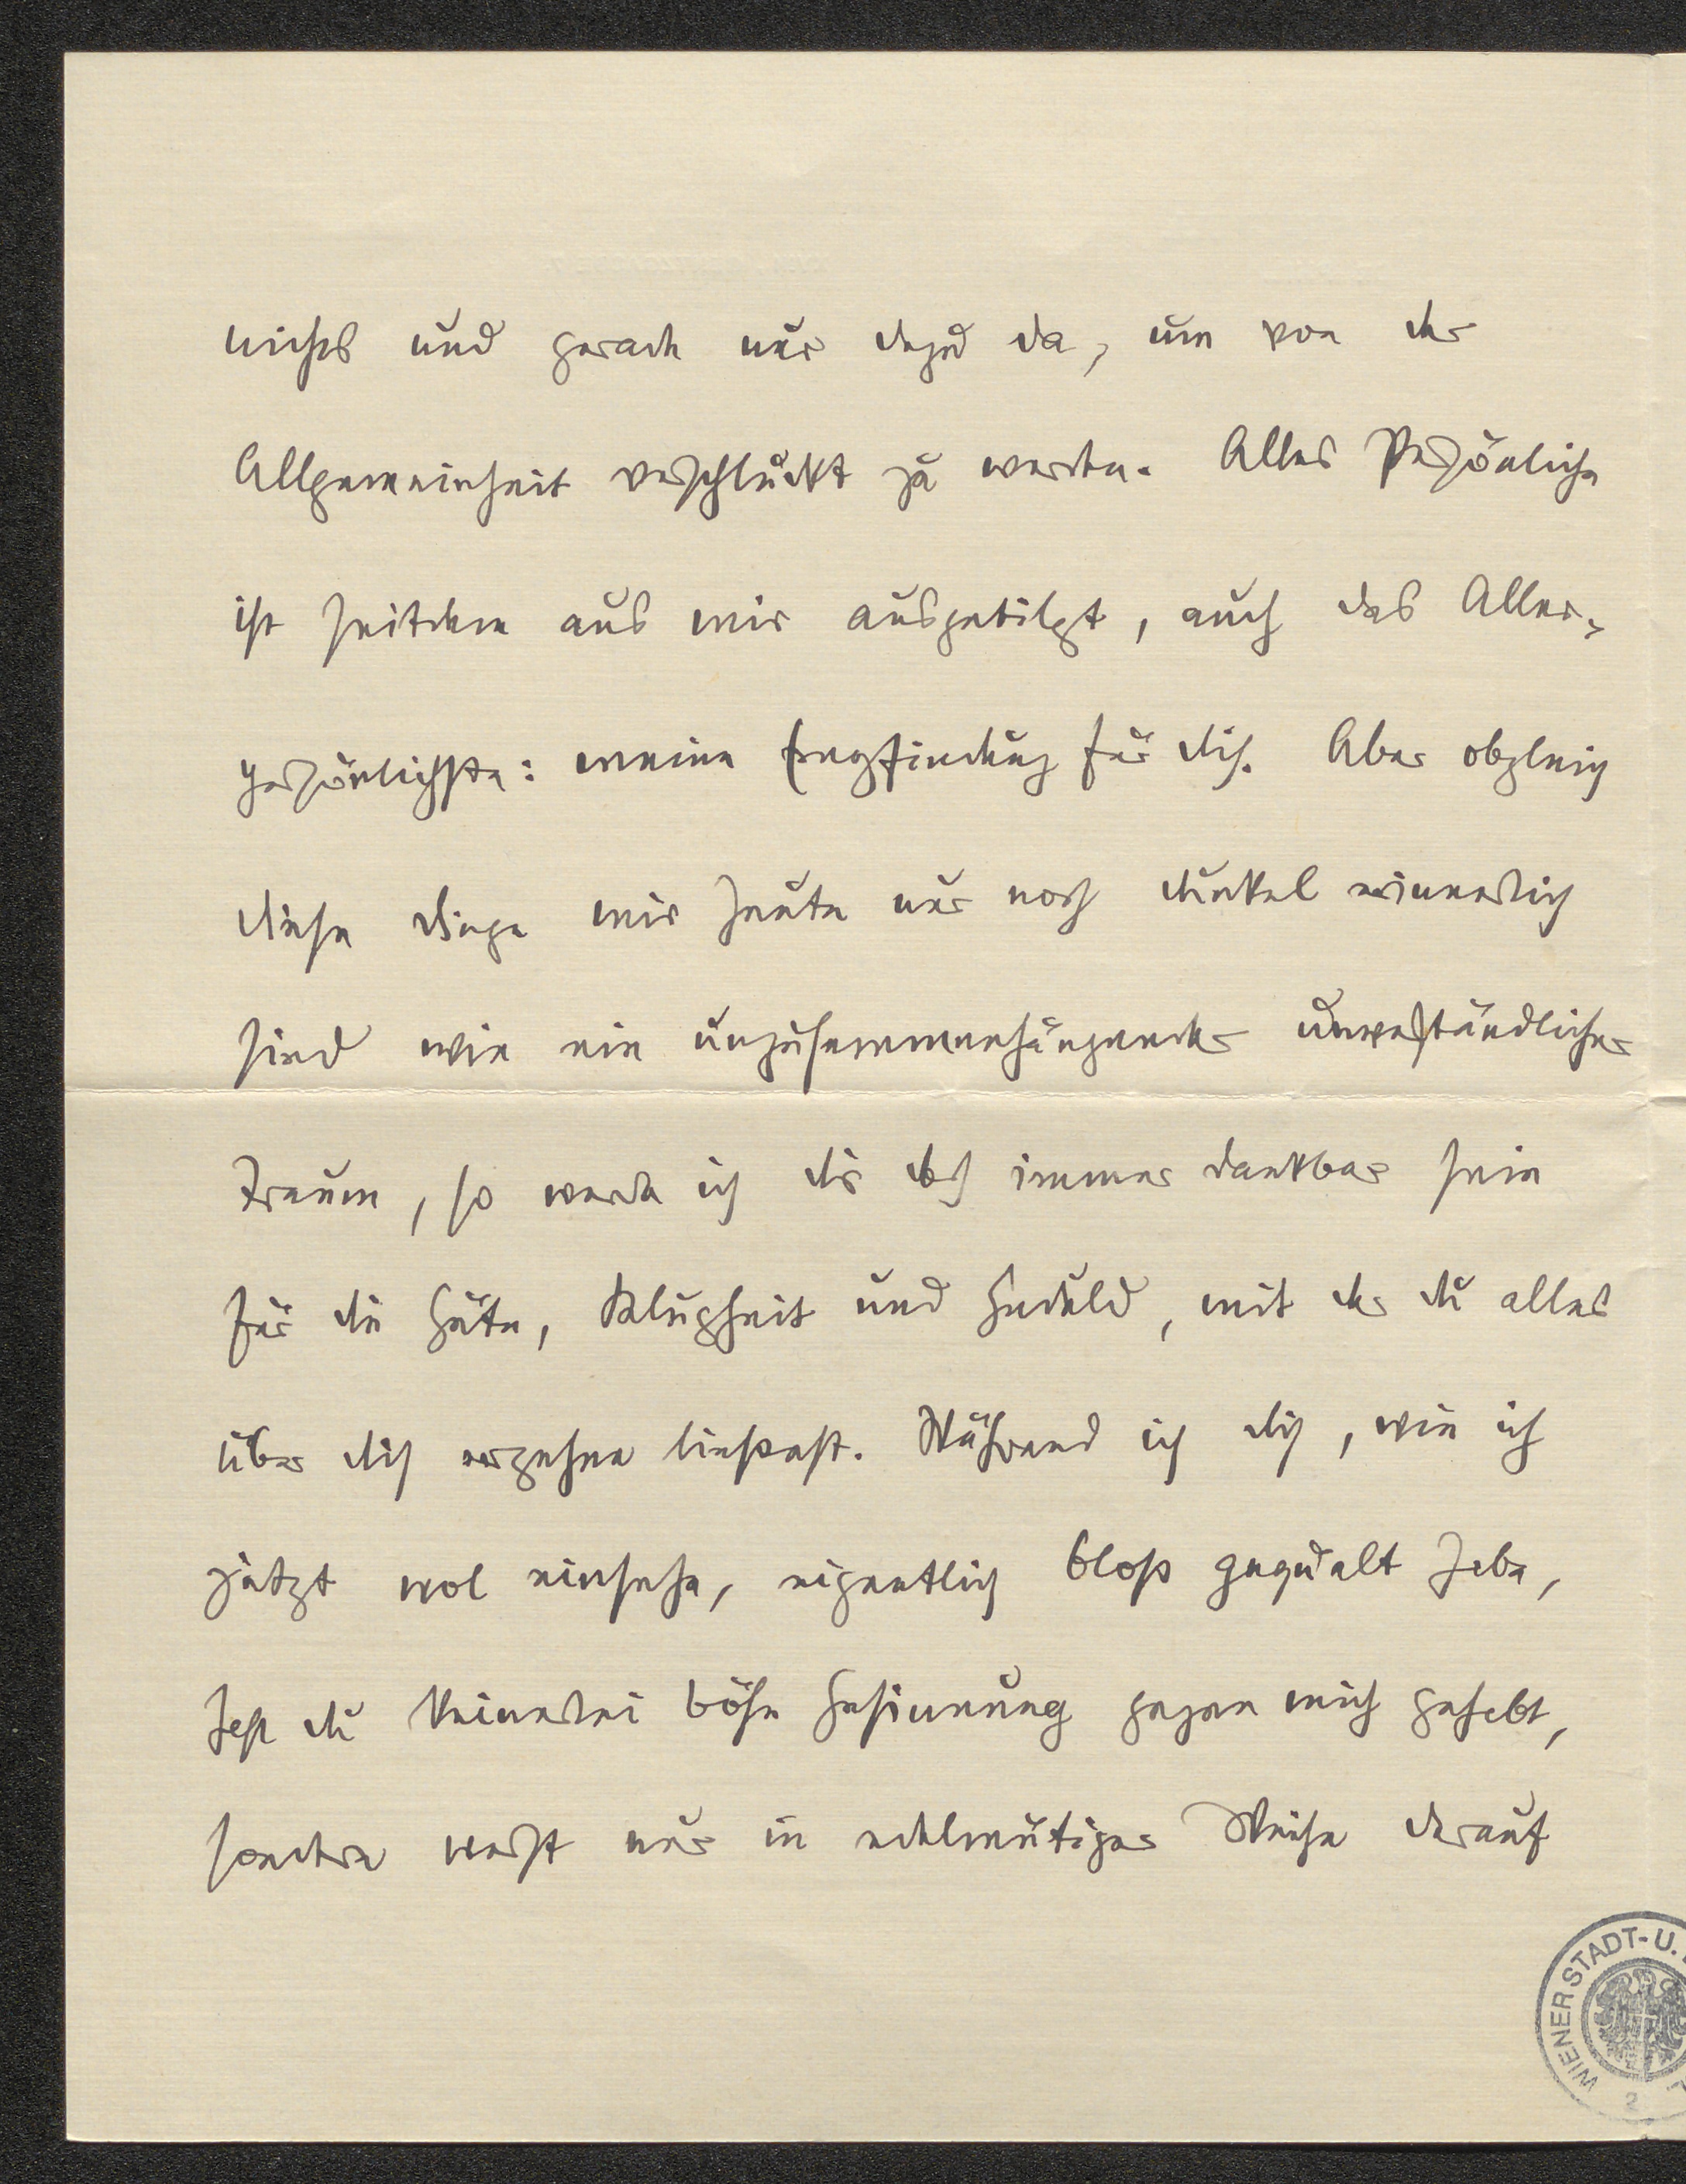 nichts und gerade nur dazu da, um von der
Allgemeinheit verschluckt zu werden. Alles Persönliche
ist seitdem aus mir ausgetilgt, auch das Aller-
persönlichste: meine Empfindung für dich. Aber obgleich
diese Dinge mir heute nur noch dunkel erinnerlich
sind wie ein unzusammenhängender unverständlicher
Traum, so werde ich dir doch immer dankbar sein
für die Güte, Klugheit und Geduld, mit der du alles
über dich ergehen liessest. Während ich dich, wie ich
jetzt wol einsehe, eigentlich bloss gequält habe,
hast du keinerlei böse Gesinnung gegen mich gehabt,
sondern warst nur in edelmütiger Weise darauf
WIENER STADT- U.
2